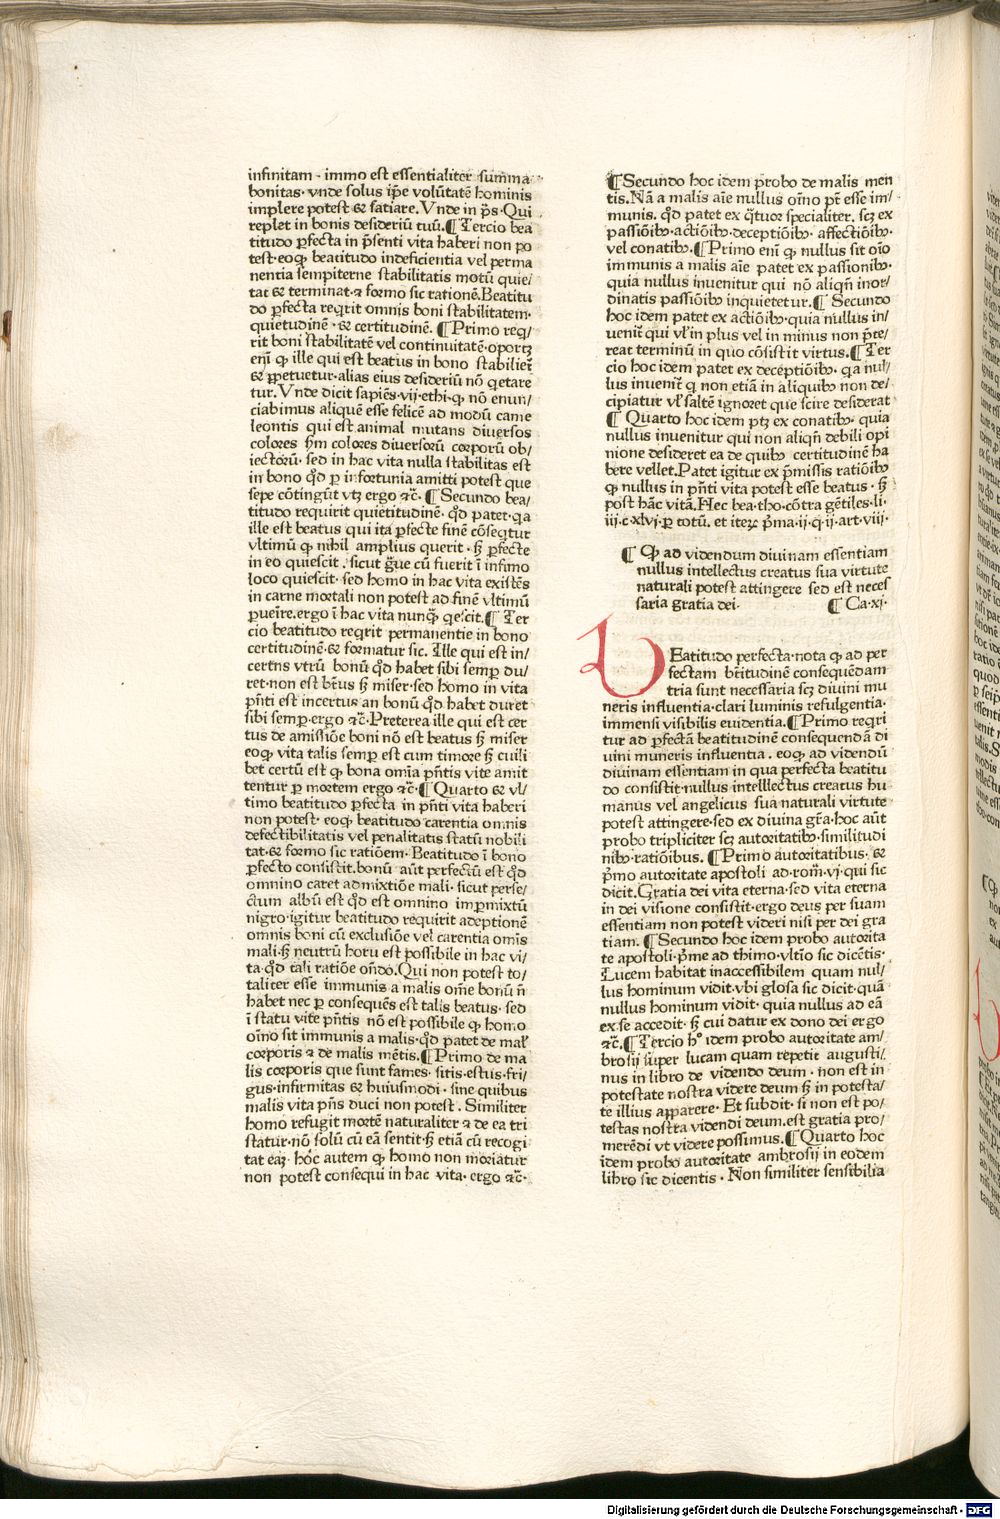 infinitam · immo est essentialiter summa
bonitas · vnde solus ip̄e volūtatē hominis
implere potest & satiare. Vnde in p̄s · Qui
replet in bonis desideriū tuū. ¶ Tercio bea
titudo ꝑfecta in p̄senti vita haberi non po
test · eoꝙ beatitudo indeficientia vel perma
nentia sempiterne stabilitatis motū quie/
tat & terminat · ⁊ formo sic rationē. Beatitu
do ꝑfecta reqrit omnis boni stabilitatem ·
quietudinē · & certitudinē. ¶ Primo req/
rit boni stabilitatē vel continuitatē · oportꝫ
eni̅ ꝙ ille qui est beatus in bono stabilier̄
& ꝑpetuetur · alias eius desideriū nō qetare
tur. Vnde dicit sapiēs · vij · ethi · ꝙ nō enun/
ciabimus aliquē esse felicē ad modū came
leontis qui est animal mutans diuersos
colores ẜm colores diuersorū corporū ob/
iectorū · sed in hac vita nulla stabilitas est
in bono q̄d ꝑ infortunia amitti potest que
sepe cōtingūt vtꝫ ergo ⁊c̄ · ¶ Secundo bea/
titudo requirit quietitudinē · q̄d patet · qa
ille est beatus qui ita ꝑfecte finē cōseqtur
vltimū ꝙ nihil amplius querit · ꝫ ꝑfecte
in eo quiescit . sicut g̈ue cū fuerit ī infimo
loco quiescit · sed homo in hac vita existēs
in carne mortali non potest ad finē vltimū
ꝑuenire. ergo ī hac vita nunꝙ̄ qescit. ¶ Ter
cio beatitudo reqrit permanentie in bono
certitudinē · & formatur sic. Ille qui est in/
certus vtrū bonū q̄d habet sibi semꝑ du/
ret · non est bt̄us ꝫ miser · sed homo in vita
pn̄ti est incertus an bonū q̄d habet duret
sibi semꝑ · ergo ⁊c̄ · Preterea ille qui est cer
tus de amissiōe boni nō est beatus ꝫ miser
eoꝙ vita talis semꝑ est cum timore ꝫ cuili
bet certū est ꝙ bona om̄ia pn̄tis vite amit
tentur ꝑ mortem ergo ⁊c̄ · ¶ Quarto & vl/
timo beatitudo ꝑfecta in pn̄ti vita haberi
non potest · eoꝙ beatitudo carentia omnis
defectibilitatis vel penalitatis statū nobili
tat · & formo sic ratiōem · Beatitudo ī bono
ꝑfecto consistit. bonū aūt perfectū est q̄d
omnino caret admixtiōe mali · sicut perfe/
ctum albū est q̄d est omnino impermixtū
nigro · igitur beatitudo requirit adeptionē
omnis boni cū exclusiōe vel carentia om̄is
mali · ꝫ neutrū horū est possibile in hac vi/
ta · q̄d tali ratiōe on̄do. Qui non potest to/
taliter esse immunis a malis om̄e bonū n̄
habet nec ꝑ consequēs est talis beatus · sed
ī statu vite pn̄tis nō est possibile ꝙ homo
oīno sit immunis a malis · q̄d patet de mal̄
corporis ⁊ de malis mētis. ¶ Primo de ma
lis corporis que sunt fames · sitis · estus · fri/
gus · infirmitas & huiusmodi · sine quibus
malis vita pn̄s duci non potest . Similiter
homo refugit mortē naturaliter ⁊ de ea tri
statur · nō solū cū eā sentit · ꝫ etiā cū recogi
tat eaꝫ · hoc autem ꝙ homo non moriatur
non potest consequi in hac vita · ergo ⁊c̄ ·
¶ Secundo hoc idem probo de malis men
tis. Nā a malis aīe nullus oīno pt̄ esse im/
munis. q̄d patet ex qtuor specialiter. scꝫ ex
passiōibꝫ · actiōibꝫ · deceptiōibꝫ · affectiōibꝫ ·
vel conatibꝫ · ¶ Primo eni̅ ꝙ nullus sit oīo
immunis a malis aīe patet ex passionibꝫ ·
quia nullus inuenitur qui nō aliqn̄ inor/
dinatis passiōibꝫ inquietetur. ¶ Secundo
hoc idem patet ex actiōibꝫ · quia nullus in/
uenit̄ qui vl̄ in plus vel in minus non p̄te/
reat terminū in quo cōsistit virtus. ¶ Ter
cio hoc idem patet ex deceptiōibꝫ · qa nul/
lus inuenit̄ q non etiā in aliquibꝫ non de/
cipiatur vl̄ saltē ignoret que scire desiderat
¶ Quarto hoc idem ptꝫ ex conatibꝫ · quia
nullus inuenitur qui non aliqn̄ debili opi
nione desideret ea de quibꝫ certitudinē ha
bere vellet. Patet igitur ex p̄missis ratiōibꝫ
ꝙ nullus in pn̄ti vita potest esse beatus · ꝫ
post hāc vitā. Hec bea · tho · cōtra gētiles · li ·
iij · c · xlvj · ꝑ totū. et iteꝝ p̄ma · ij · q · ij · art · viij ·
¶ Ꝙ ad videndum diuinam essentiam
nullus intellectus creatus sua virtute
naturali potest attingere sed est neces
saria gratia dei · ¶ Ca · xj ·
BEatitudo perfecta · nota ꝙ ad per
fectam bt̄itudinē consequēdam
tria sunt necessaria scꝫ diuini mu
neris influentia · clari luminis refulgentia ·
immensi visibilis euidentia. ¶ Primo reqri
tur ad ꝑfectā beatitudinē consequendā di
uini muneris influentia . eoꝙ ad videndū
diuinam essentiam in qua perfecta beatitu
do consistit · nullus intelllectus creatus hu
manus vel angelicus sua naturali virtute
potest attingere · sed ex diuina gr̄a · hoc aūt
probo tripliciter scꝫ autoritatibꝫ · similitudi
nibꝫ · ratiōibus. ¶ Primo autoritatibus · &
p̄mo autoritate apostoli ad · rom̄ · vj · qui sic
dicit. Gratia dei vita eterna · sed vita eterna
in dei visione consistit · ergo deus per suam
essentiam non potest videri nisi per dei gra
tiam. ¶ Secundo hoc idem probo autorita
te apostoli · p̄me ad thimo · vltīo sic dicētis ·
Lucem habitat inaccessibilem quam nul/
lus hominum vidit · vbi glosa sic dicit · quā
nullus hominum vidit · quia nullus ad eā
ex se accedit · ꝫ cui datur ex dono dei ergo
⁊c̄. ¶ Tercio hº idem probo autoritate am/
brosij super lucam quam repetit augusti/
nus in libro de videndo deum · non est in
potestate nostra videre deum ꝫ in potesta/
te illius apparere · Et subdit · si non est po/
testas nostra videndi deum. est gratia pro/
merēdi vt videre possimus. ¶ Quarto hoc
idem probo autoritate ambrosij in eodem
libro sic dicentis · Non similiter sensibilia
Digitalisierung gefördert durch die Deutsche Forschungsgemeinschaft - DFG